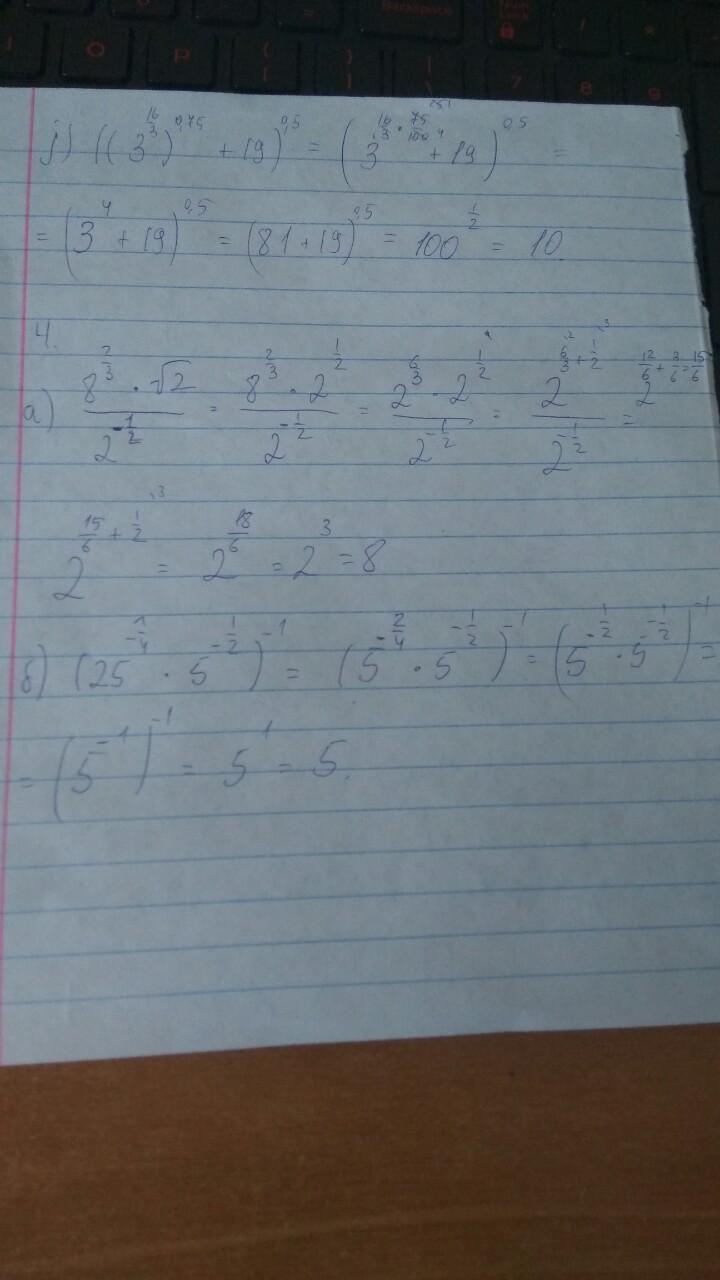 Backspace Num Lock / *
O P { [ } ] | \ 7 8 9
j) ((3^(16/3))^0,75 + 19)^0,5 = (3^(16/3 · 75/100) + 19)^0,5 =
= (3^4 + 19)^0,5 = (81 + 19)^0,5 = 100^(1/2) = 10.
4.
а) (8^(2/3) · √2)/(2^(-1/2)) = (8^(2/3) · 2^(1/2))/(2^(-1/2)) = (2^(6/3) · 2^(1/2))/(2^(-1/2)) = (2^(6/3 + 1/2))/(2^(-1/2)) = 2^(12/6 + 3/6 = 15/6)
2^(15/6 + 1/2) = 2^(18/6) = 2^3 = 8
б) (25^(-1/4) · 5^(-1/2))^(-1) = (5^(-2/4) · 5^(-1/2))^(-1) = (5^(-1/2) · 5^(-1/2))^(-1) =
= (5^(-1))^(-1) = 5^1 = 5.